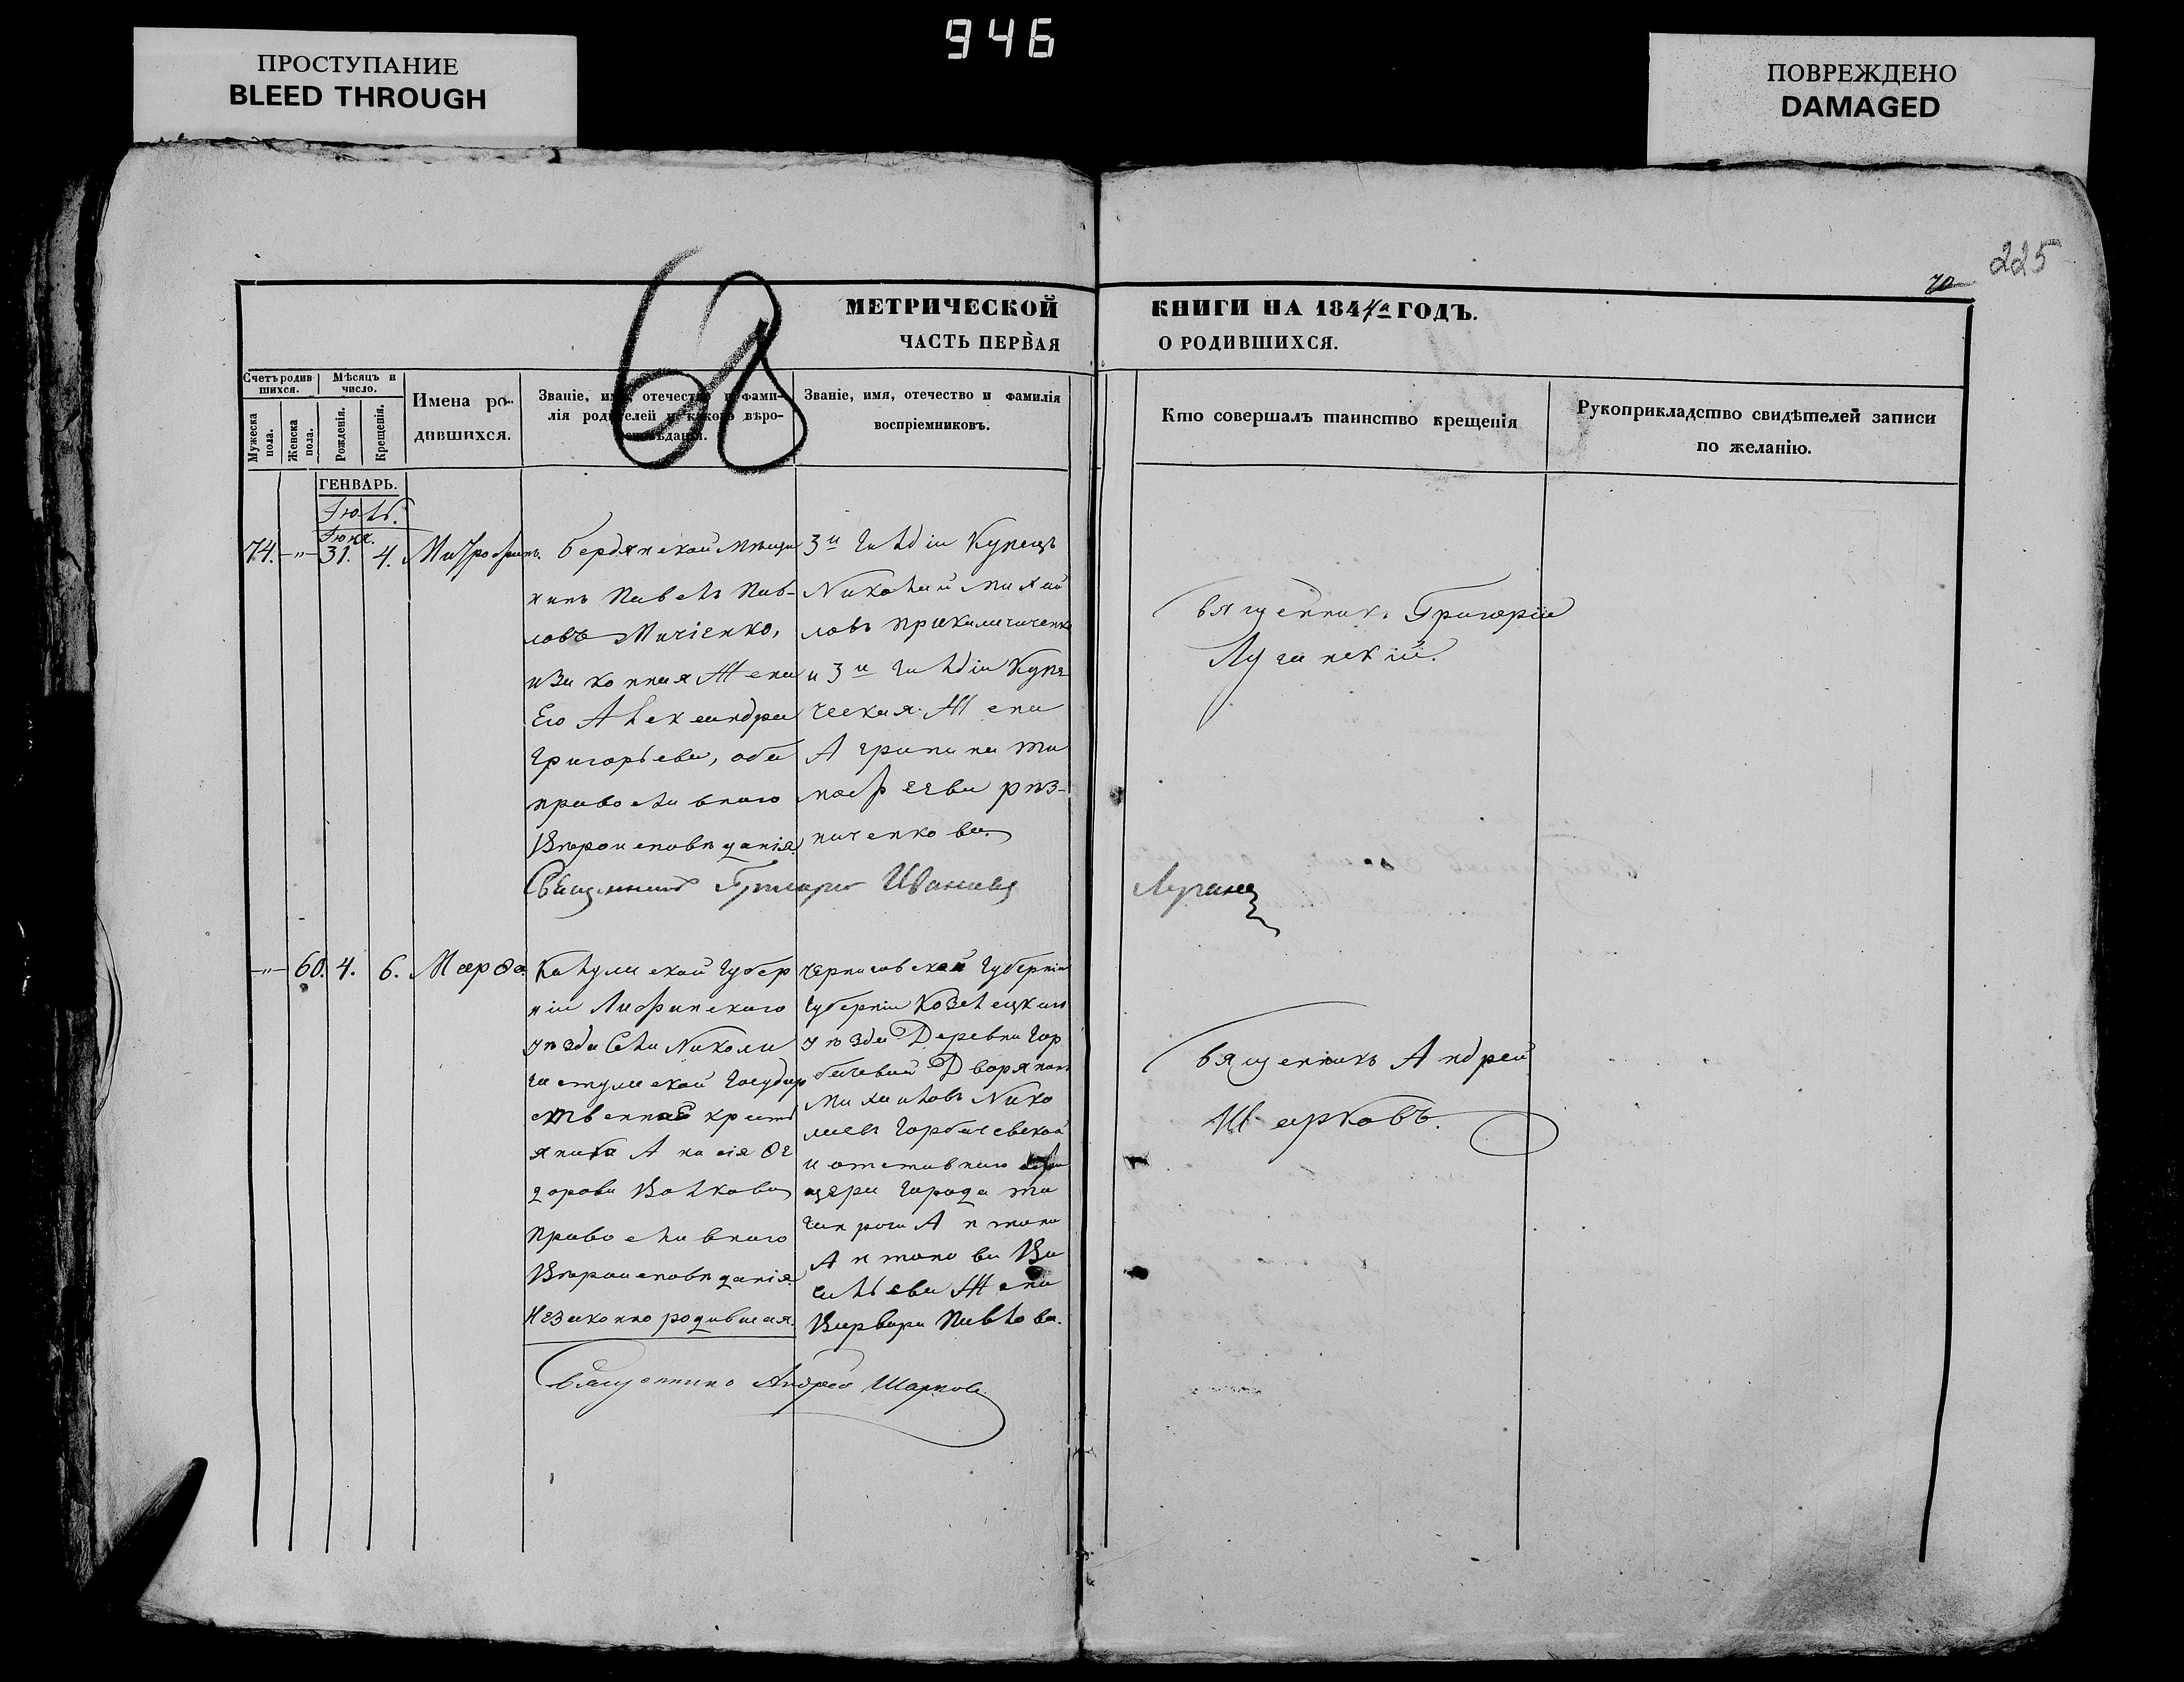 946
ПРОСТУПАНИЕ
BLEED THROUGH
ПОВРЕЖДЕНО
DAMAGED
225
70
68
МЕТРИЧЕСКОЙ
ЧАСТЬ ПЕРВАЯ
КНИГИ НА 1844й ГОДЪ.
О РОДИВШИХСЯ.
Счетъ родив
шихся.
Мужеска
пола.
Женска
пола.
Мѣсяцъ и
число.
Рожденія.
Крещенія.
Имена ро-
дившихся.
Званіе, имя, отечество и фами-
лія родителей и какого вѣро-
исповѣданія.
Званіе, имя, отечество и фамилія
воспріемниковъ.
Кто совершалъ таинство крещенія
Рукоприкладство свидѣтелей записи
по желанію.
ГЕНВАРЬ.
Іюль.
74. —"— 31. 4. Митрофанъ.
Бердянской мѣща
нинъ Павелъ Пав-
ловъ
и законная Жена
Его Александра
Григорьева, оба
православнаго
Вѣроисповѣданія.
3й гильдіи Купецъ
Николай Михай
ловъ
и 3й гильдіи Купе
ческая Жена
Агрипина Ти
мофеева Рѣз-
ниченкова.
Священникъ Григорій
Лугинскій.
Священникъ Григорій Иванов
—"— 60. 4. 6. Марѳа.
Калужской Губер
ніи Лифинскаго
уѣзда Села Николы
Государ
ственная кресть
янка Анасія Ѳе
дорова Волкова
православнаго
Вѣроисповѣданія.
Незаконнородившая.
Черниговской Губерніи
Губерніи Козелецкаго
уѣзда Деревни Гор
бачевой Дворянинъ
Михаиловъ Нико
лаевъ Горбачевской
и отставнаго
города Та
ганрога Антона
Антонова Ва
сильева Жена
Варвара Павлова.
Священникъ Андрей
Шарковъ.
Священникъ Андрей Шарковъ